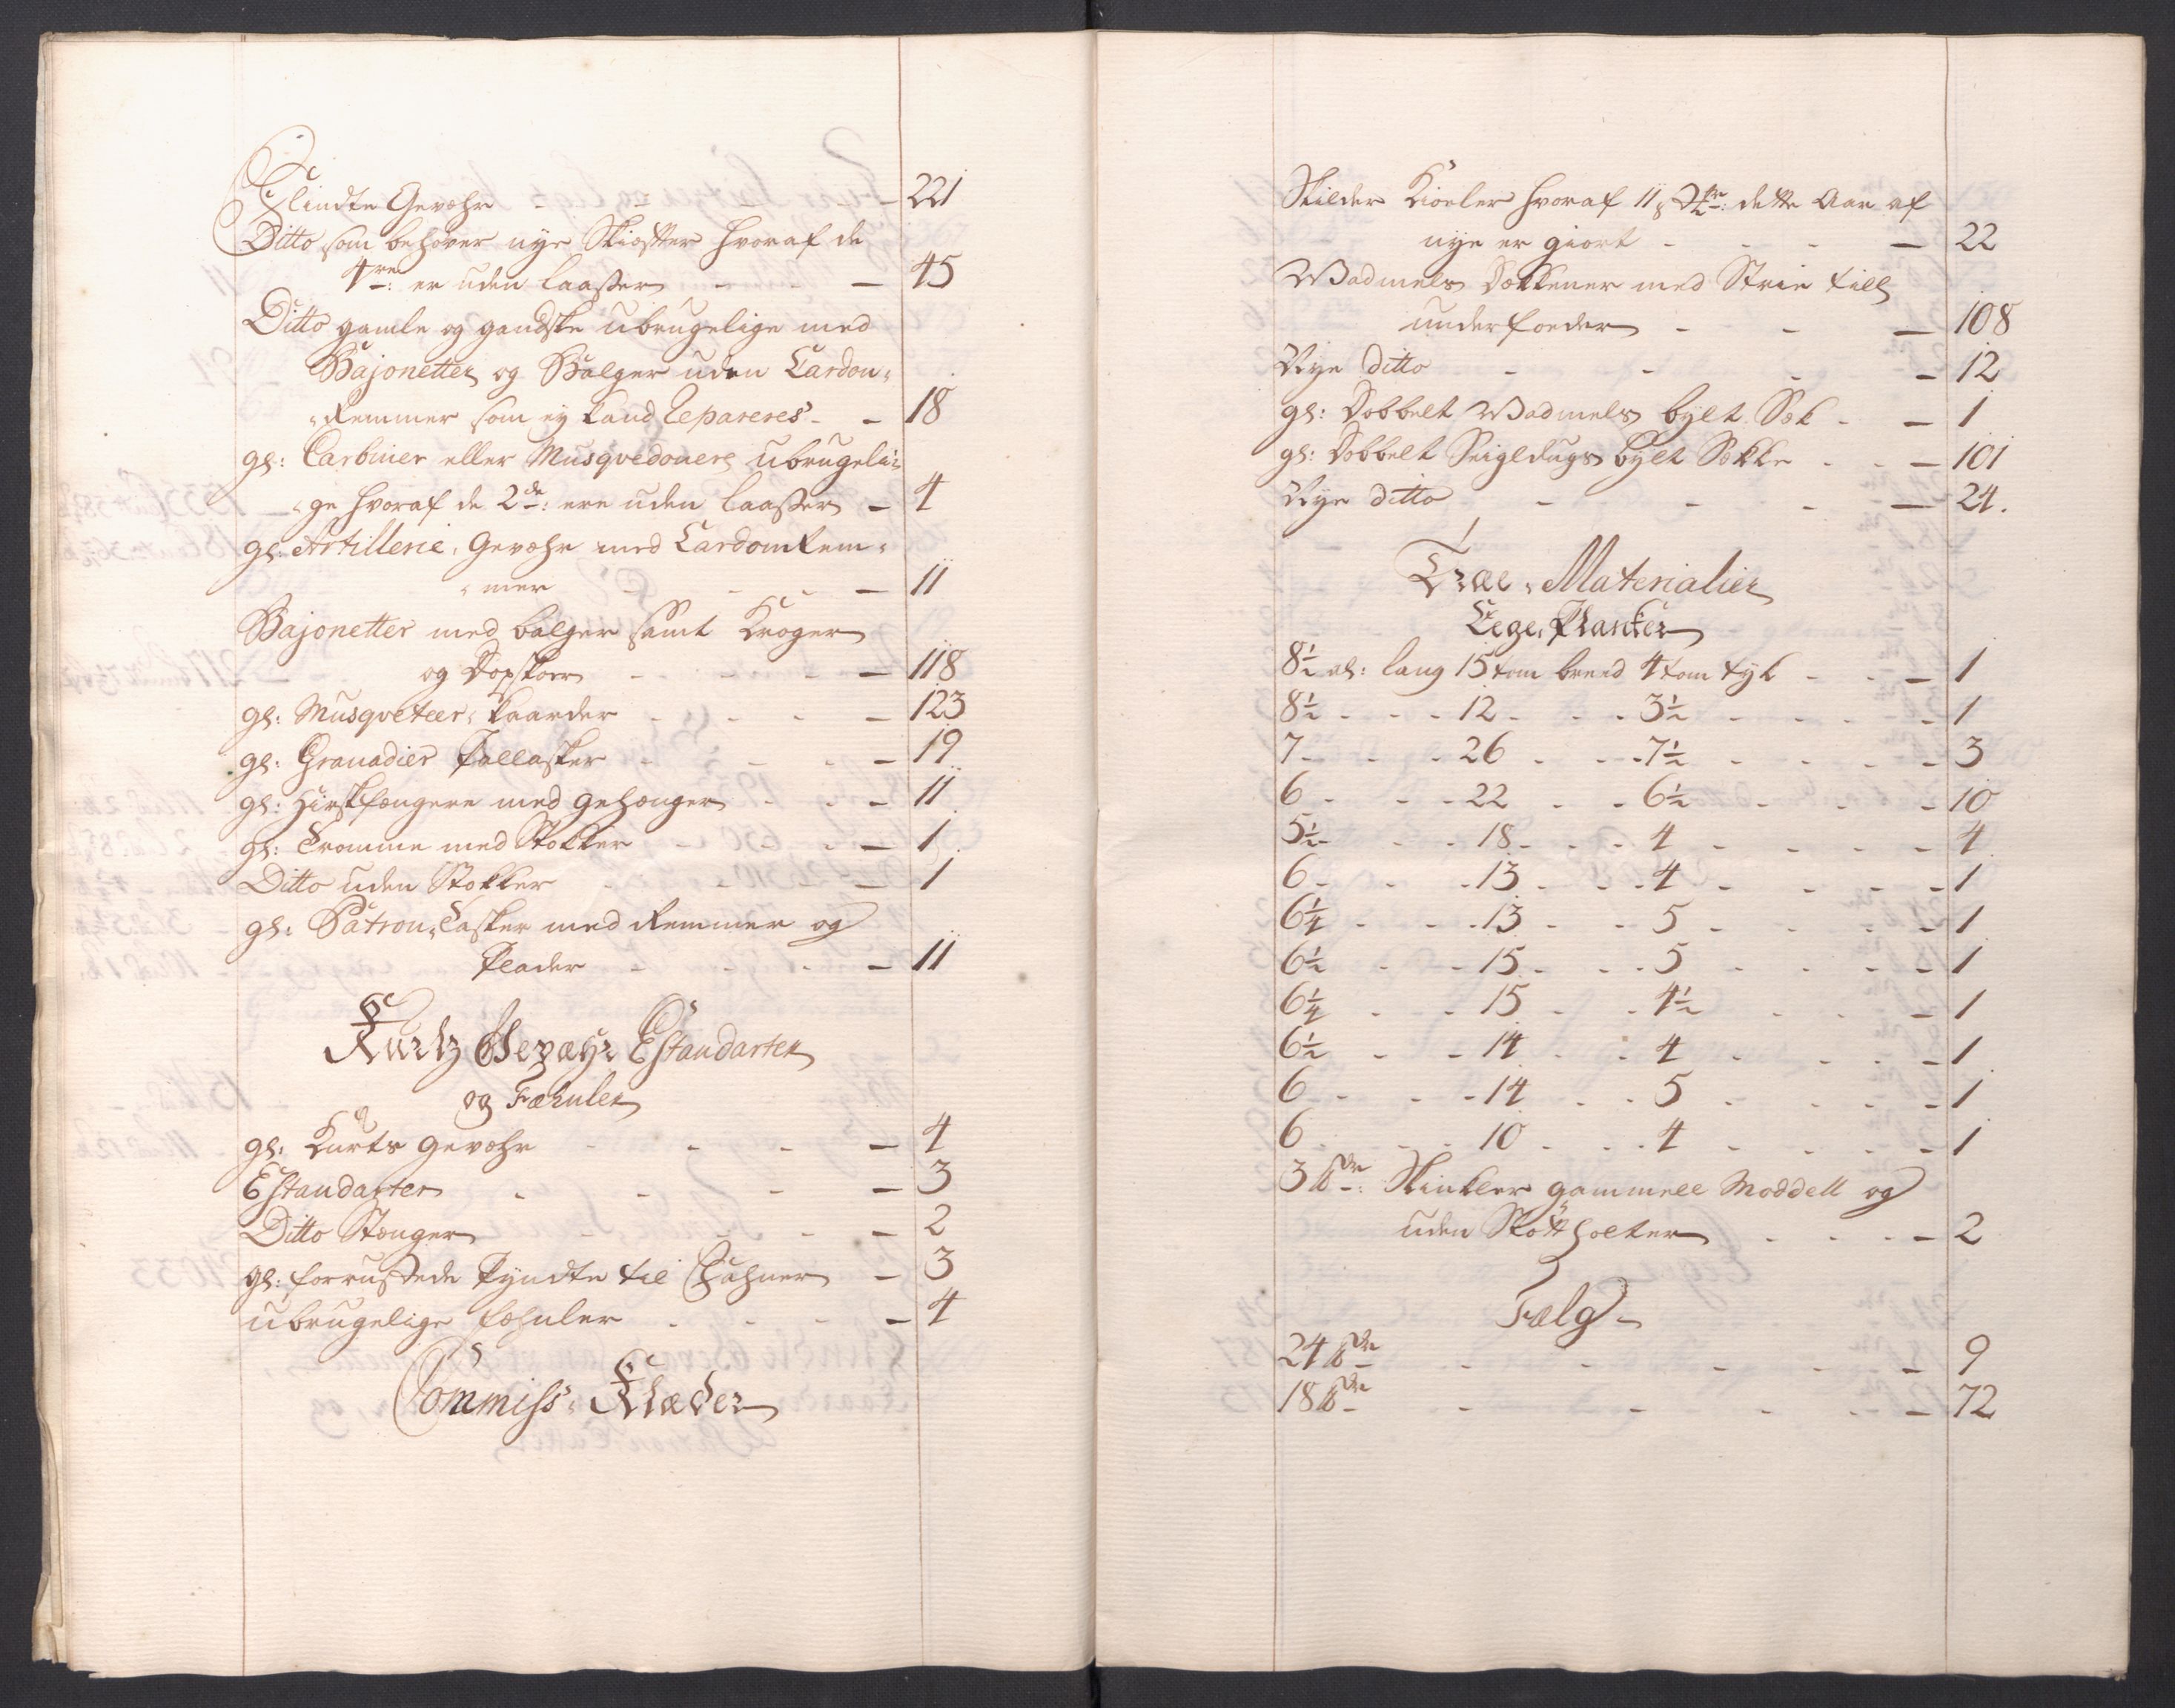 Flindte Gevæhr - - - - 221
Ditto som behøver nye Skiefter hvoraf de
4re: er uden laaßer - - - 45
Ditto gamle og gandske ubrugelige med
Bajonetter og Balger uden Cardon-
Remmer som ey kand Repareres - - 18
gl: Carbiner eller Musqvedonere ubrugeli-
ge hvoraf de 2de: ere uden laaßer - 4
gl: Artillerie, Gevæhr med Cardon Rem-
mer - - - - 11
Bajonetter med balger samt Kroger
og Dopskoer - - - - 118
gl: Musqveteer, kaarder - - - - 123
gl: Granadier Pallasker - - - - 19
gl: Hirskfængere med gehænger - - - 11
gl: Tromme med Stokker - - - - 1
Ditto uden Stokker - - - 1
gl: Patron, Tasker med Remmer og
Plader - - - - 11
Kurtz Gevæhr Estandarter
og Fæhnler
gl: Kurts gevæhr - - - - 4
Estandarter - - - - 3
Ditto Stænger - - - - 2
gl: forrustede Pyndte til Fahner - 3
ubrugelige fæhnler - - - - 4
Commiss: Klæder
Skilder Kioeler hvoraf 11 dette Aar af
nye er giort - - - - 22
Wadmels Dækkener med Strie till
underfoeder - - - 108
Nye ditto - - - - 12
gl: Dobbelt Wadmels bylt Sæk - - 1
gl: Dobbelt Seigldugs bylt Sække - - - 101
Nye ditto - - - - 24.
Træe, Materialier
Eege, Planker
8½ al: lang 15 tom breed 4 tom tyk - - - 1
8½ - - - 12 - - - 3½ - - - - 1
7 - - - 26 - - - 7½ - - - - 3
6 - - - 22 - - - 6½ - - - - 10
5½ - - - 18 - - - 4 - - - - 4
6 - - - 13 - - - 4 - - - - 1
6¼ - - - 13 - - 5 - - - - 1
6½ - - - 15 - - - 5 - - - - 1
6¼ - - - 15 - - 4½ - - - - 1
6½ - - - 14 - - 4 - - - - 1
6 - - - 14 - - 5 - - - - 1
6 - - - 10 - - - 4 - - - - 1
3 ℔de: Skinkler gammell Moddell og
uden Støttholter - - - - 2
Fælg
24 ℔de - - - - - 9
18 ℔de - - - - - 72